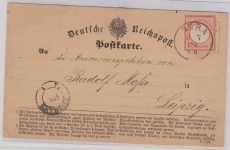 Deutsche Reichspost.
Postkarte.
An
die Annoncenexpedition von
Rudolf Mosse
in
Leipzig